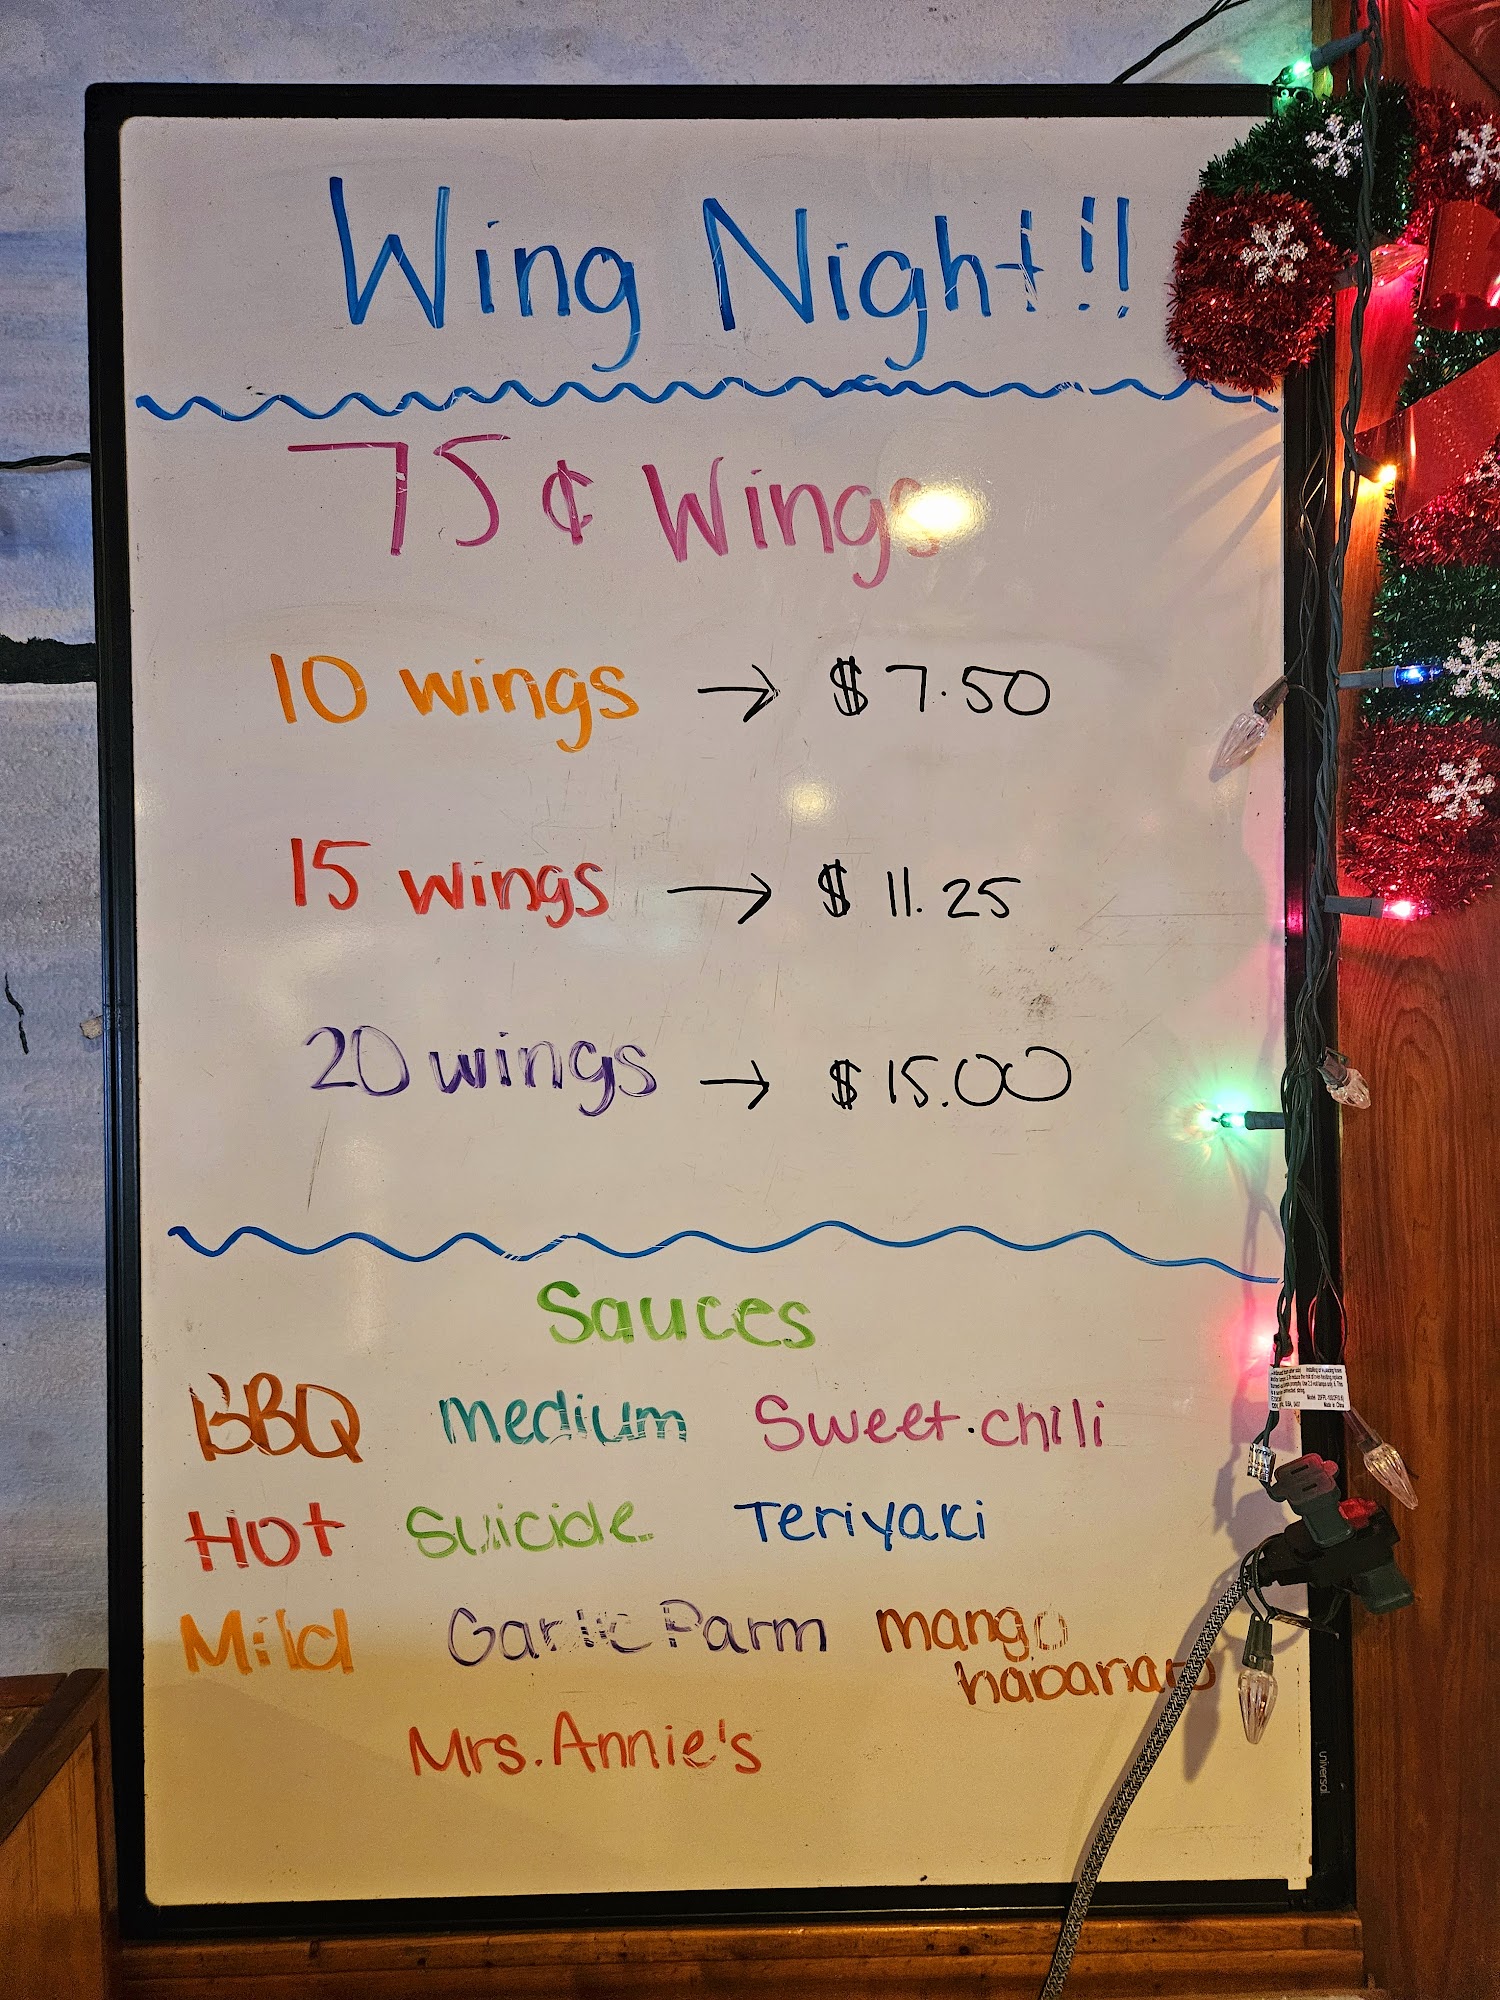 Wing Night!!
75¢ Wings
10 wings → $7.50
15 wings → $11.25
20 wings → $15.00
Sauces
BBQ medium Sweet.chili
Hot Suicide Teriyaki
Mild Garlic Parm mango
habanaro
Mrs. Annie's
universal